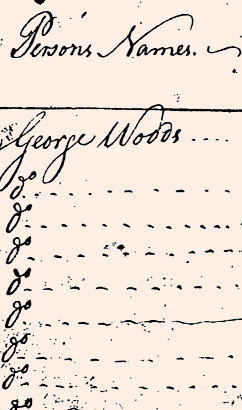 Person's Names.
George Woods
do
do
do
do
do
do
do
do